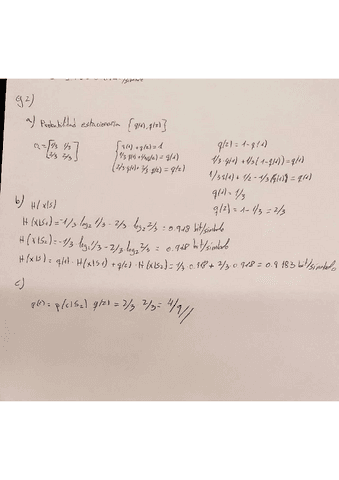 ej 2)
a) Probabilidad estacionaria [q(1), q(2)]
q(1) + q(2) = 1
q(2) = 1 - q(1)
1/3 q(1) + 1/3 (1 - q(1)) = q(1)
2/3 q(1) + 2/3 q(2) = q(2)
q(1) = 1/3
q(2) = 1 - 1/3 = 2/3
b) H(X|S)
H(X|S1) = -1/3 · log2 1/3 - 2/3 · log2 2/3 = 0.918 bit/símbolo
H(X|S2) = -1/3 · log2 1/3 - 2/3 · log2 2/3 = 0.918 bit/símbolo
H(X|S) = q(1) · H(X|S1) + q(2) · H(X|S2) = 1/3 · 0.918 + 2/3 · 0.918 = 0.9183 bit/símbolo
c)
= 2/3 · 2/3 = 4/9 //